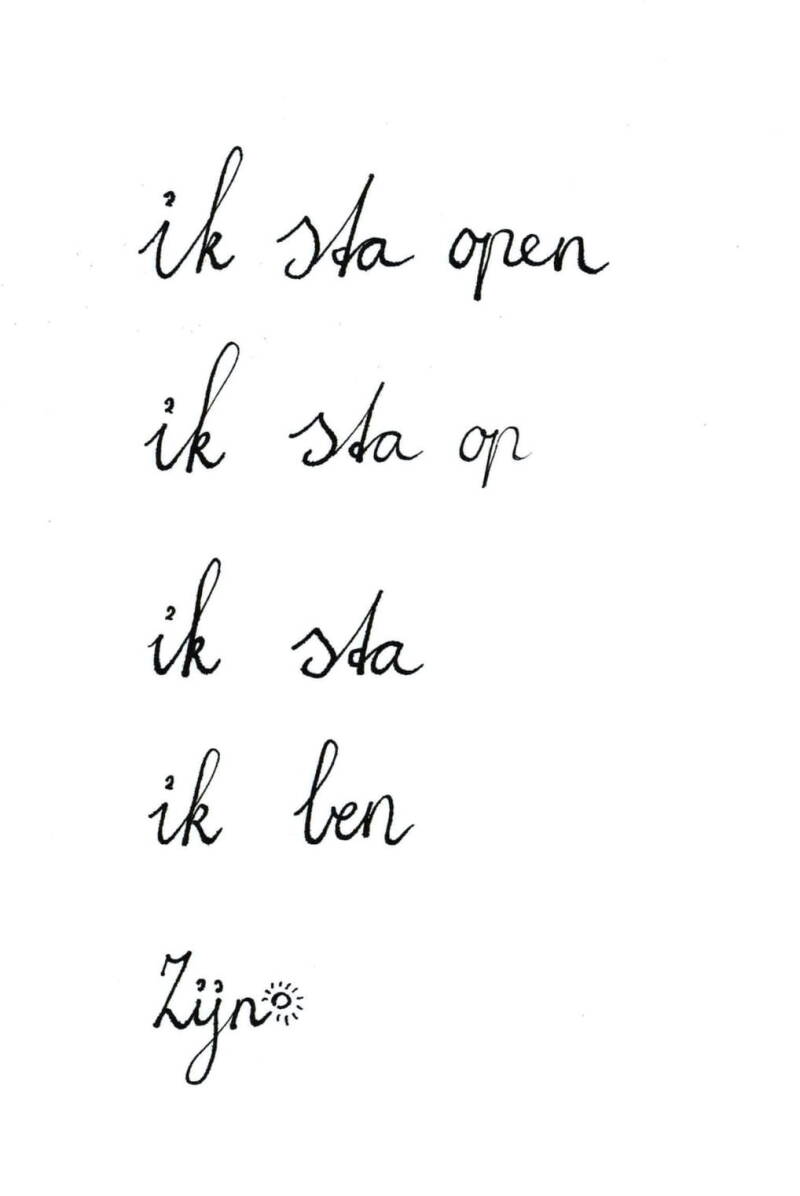 ik sta open
ik sta op
ik sta
ik ben
Zijn